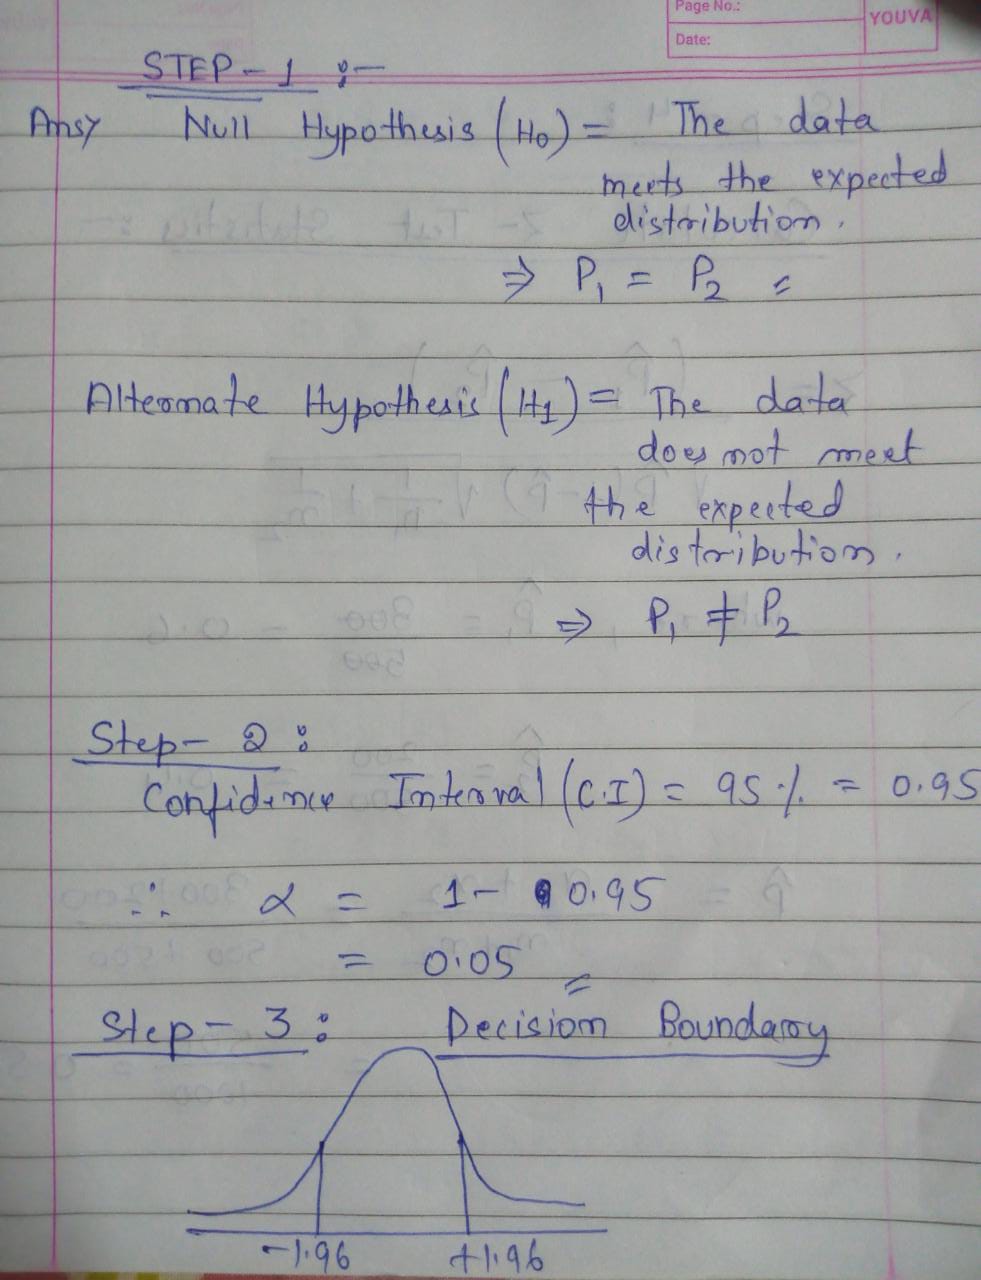 Page No.:
YOUVA
Date:
STEP - 1 :-
Ans> Null Hypothesis (H0) = The data
meets the expected
distribution.
⇒ P1 = P2
Alternate Hypothesis (H1) = The data
does not meet
the expected
distribution.
⇒ P1 ≠ P2
Step - 2 :
Confidence Interval (C.I) = 95 % = 0.95
∴ α = 1 - 0.95
= 0.05
Step - 3 : Decision Boundary
-1.96 +1.96